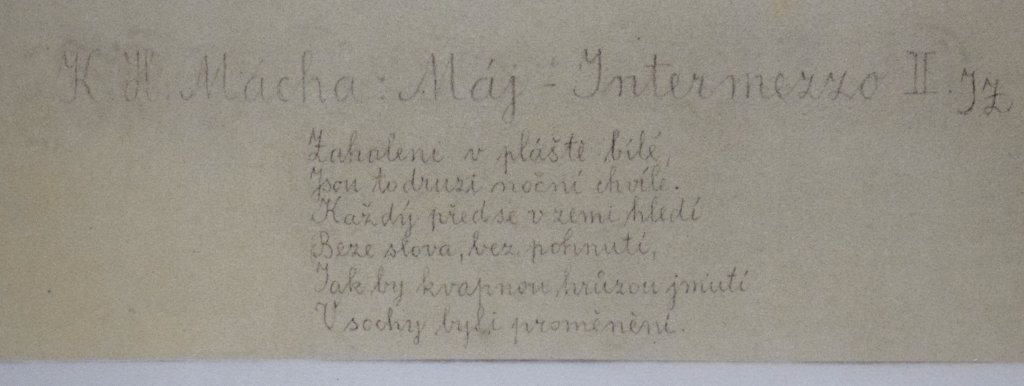 K. H. Mácha: Máj - Intermezzo II. JZ
Zahaleni v pláště bílé,
Jsou to druzi noční chvíle.
Každý před se v zemi hledí
Beze slova, bez pohnutí,
Jak by kvapnou hrůzou jmutí
V sochy byli proměněni.